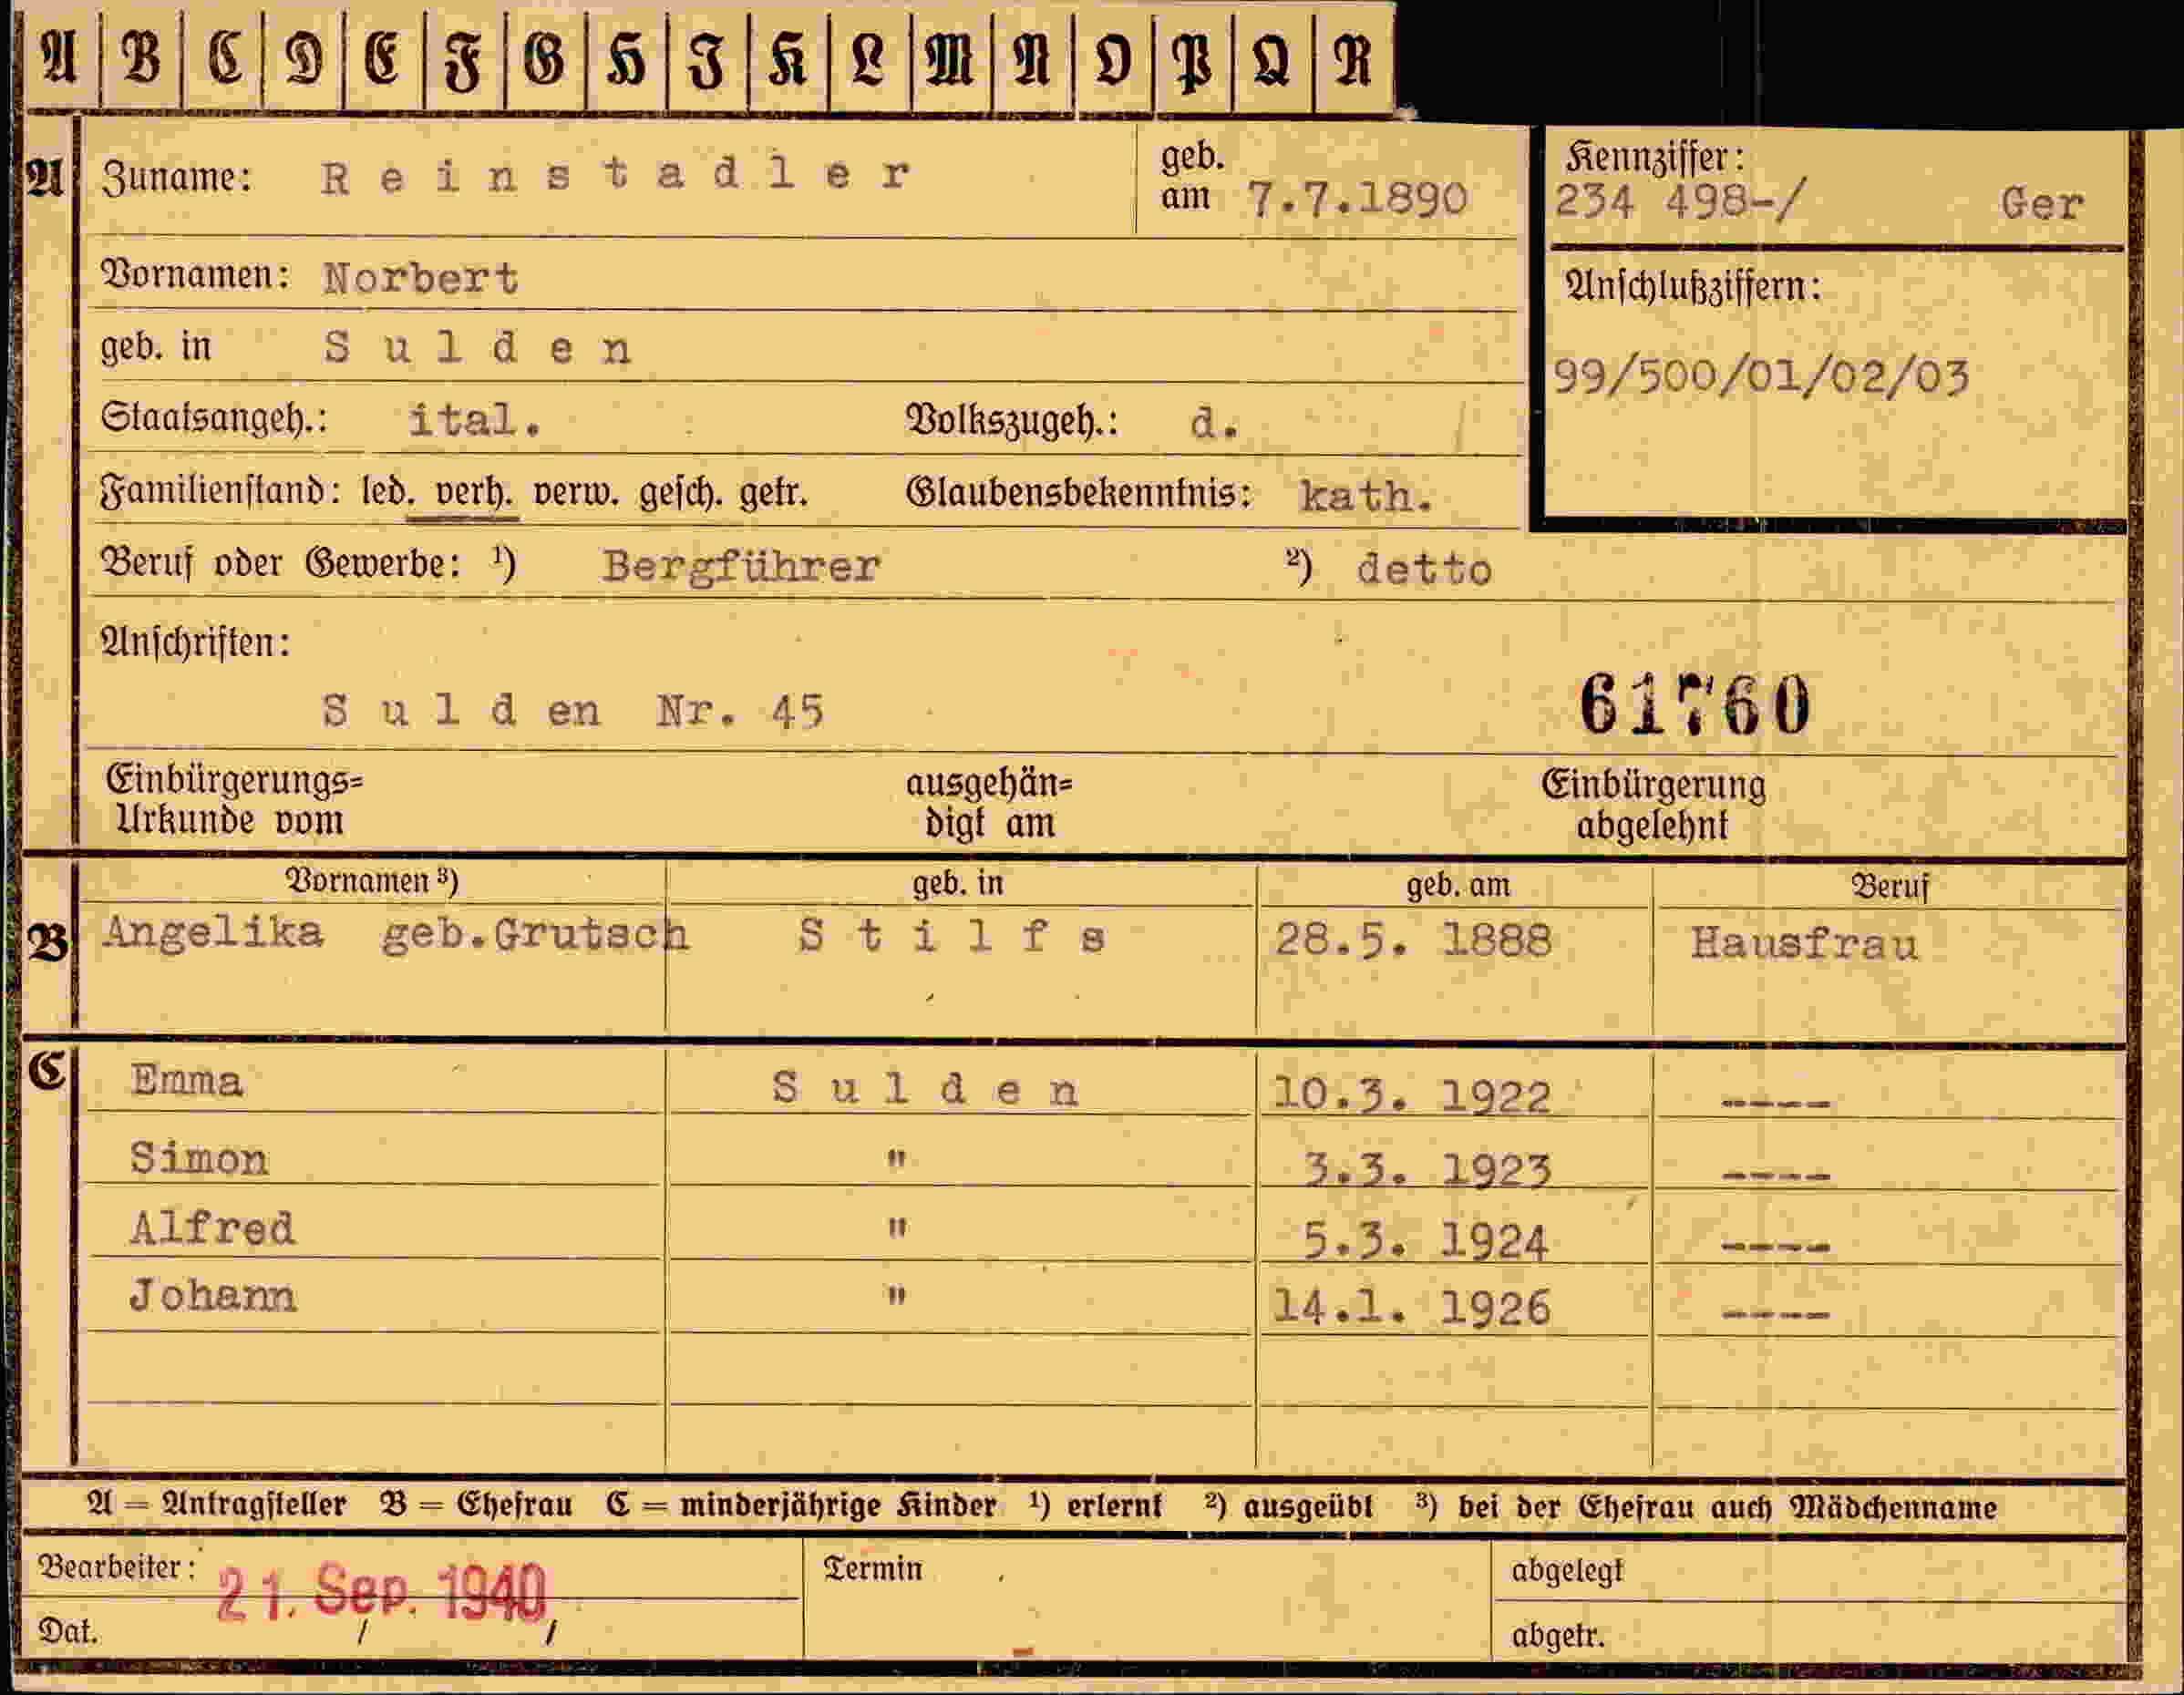 A B C D E F G H I K L M N O P Q R
A Zuname: Reinstadler geb. am 7.7.1890
Kennziffer:
234 498-/ Ger
Vornamen: Norbert
Anschlußziffern:
geb. in Sulden
99/500/01/02/03
Staatsangeh.: ital. Volkszugeh.: d.
Familienstand: led. verh. verw. gesch. getr. Glaubensbekenntnis: kath.
Beruf oder Gewerbe: ¹) Bergführer ²) detto
Anschriften:
Sulden Nr. 45 61760
Einbürgerungs= ausgehän= Einbürgerung
Urkunde vom digt am abgelehnt
Vornamen ³) geb. in geb. am Beruf
B Angelika geb.Grutsch Stilfs 28.5. 1888 Hausfrau
C Emma Sulden 10.3. 1922 ----
Simon " 3.3. 1923 ----
Alfred " 5.3. 1924 ----
Johann " 14.1. 1926 ----
A = Antragsteller B = Ehefrau C = minderjährige Kinder ¹) erlernt ²) ausgeübt ³) bei der Ehefrau auch Mädchenname
Bearbeiter: Termin abgelegt
21. Sep. 1940
Dat. / / abgetr.